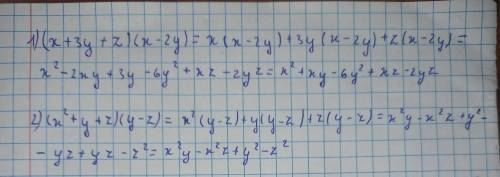 1) (x + 3y + z)(x - 2y) = x(x - 2y) + 3y(x - 2y) + z(x - 2y) =
x² - 2xy + 3y - 6y² + xz - 2yz = x² + xy - 6y² + xz - 2yz
2) (x² + y + z)(y - z) = x²(y - z) + y(y - z) + z(y - z) = x²y - x²z + y² -
- yz + yz - z² = x²y - x²z + y² - z²